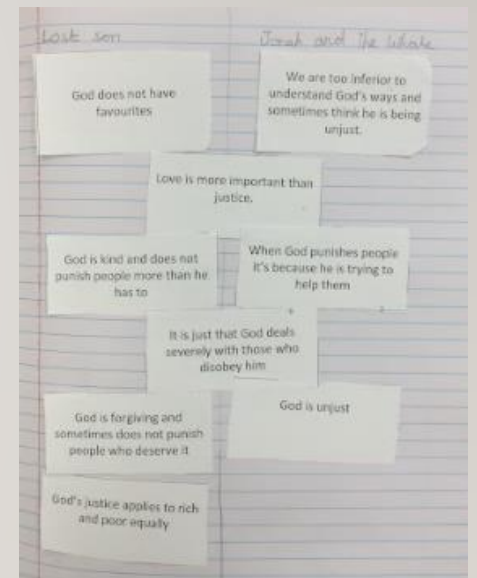 Lost son
Jonah and the Whale
God does not have
favourites
We are too inferior to
understand God's ways and
sometimes think he is being
unjust.
Love is more important than
justice.
God is kind and does not
punish people more than he
has to
When God punishes people
it's because he is trying to
help them
It is just that God deals
severely with those who
disobey him
God is forgiving and
sometimes does not punish
people who deserve it
God is unjust
God's justice applies to rich
and poor equally